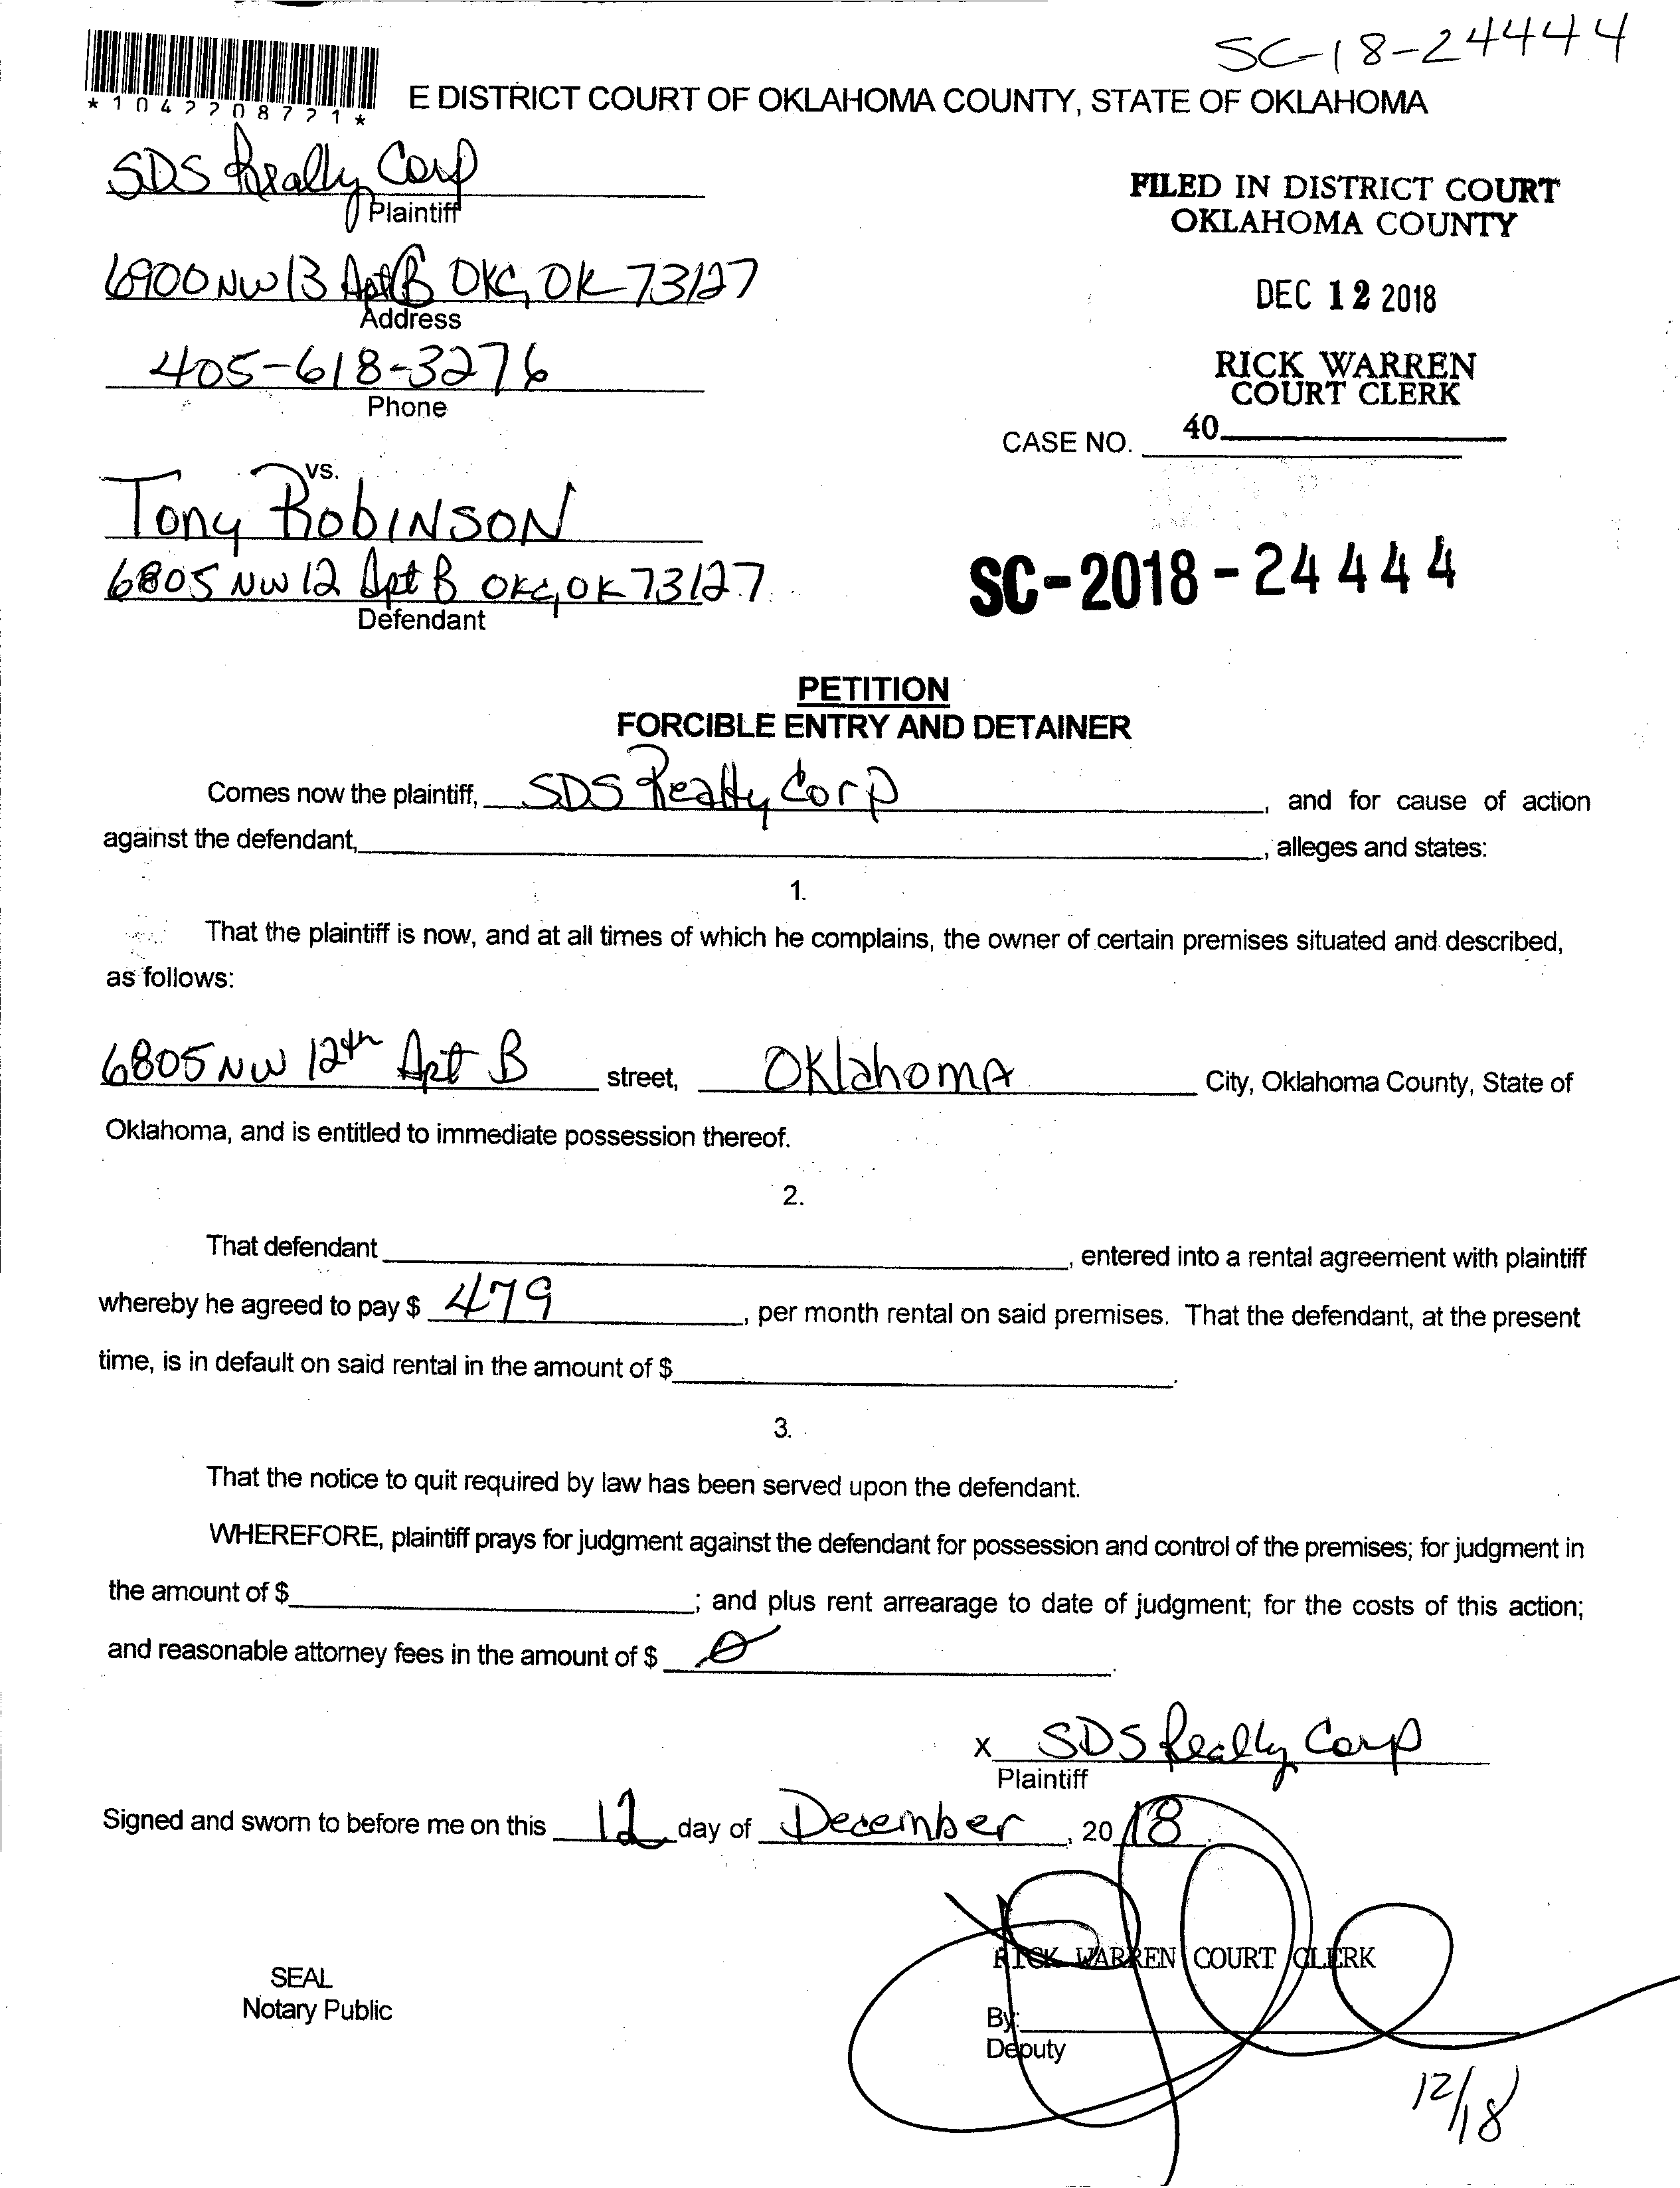 SC-18-24444
*1042208721*
E DISTRICT COURT OF OKLAHOMA COUNTY, STATE OF OKLAHOMA
SDS Realty Corp
Plaintiff
FILED IN DISTRICT COURT
OKLAHOMA COUNTY
6900 NW 13 Apt B OKC, OK 73127
Address
DEC 12 2018
405-618-3276
Phone
RICK WARREN
COURT CLERK
CASE NO. 40
vs.
Tony Robinson
6805 NW 12 Apt B OKC, OK 73127
Defendant
SC-2018-24444
PETITION
FORCIBLE ENTRY AND DETAINER
Comes now the plaintiff, SDS Realty Corp, and for cause of action
against the defendant, , alleges and states:
1.
That the plaintiff is now, and at all times of which he complains, the owner of certain premises situated and described,
as follows:
6805 NW 12th Apt B street, Oklahoma City, Oklahoma County, State of
Oklahoma, and is entitled to immediate possession thereof.
2.
That defendant , entered into a rental agreement with plaintiff
whereby he agreed to pay $ 479, per month rental on said premises. That the defendant, at the present
time, is in default on said rental in the amount of $ .
3.
That the notice to quit required by law has been served upon the defendant.
WHEREFORE, plaintiff prays for judgment against the defendant for possession and control of the premises; for judgment in
the amount of $ ; and plus rent arrearage to date of judgment; for the costs of this action;
and reasonable attorney fees in the amount of $ 0.
X SDS Realty Corp
Plaintiff
Signed and sworn to before me on this 12 day of December, 2018.
RICK WARREN COURT CLERK
SEAL
Notary Public
By:
Deputy
12/18